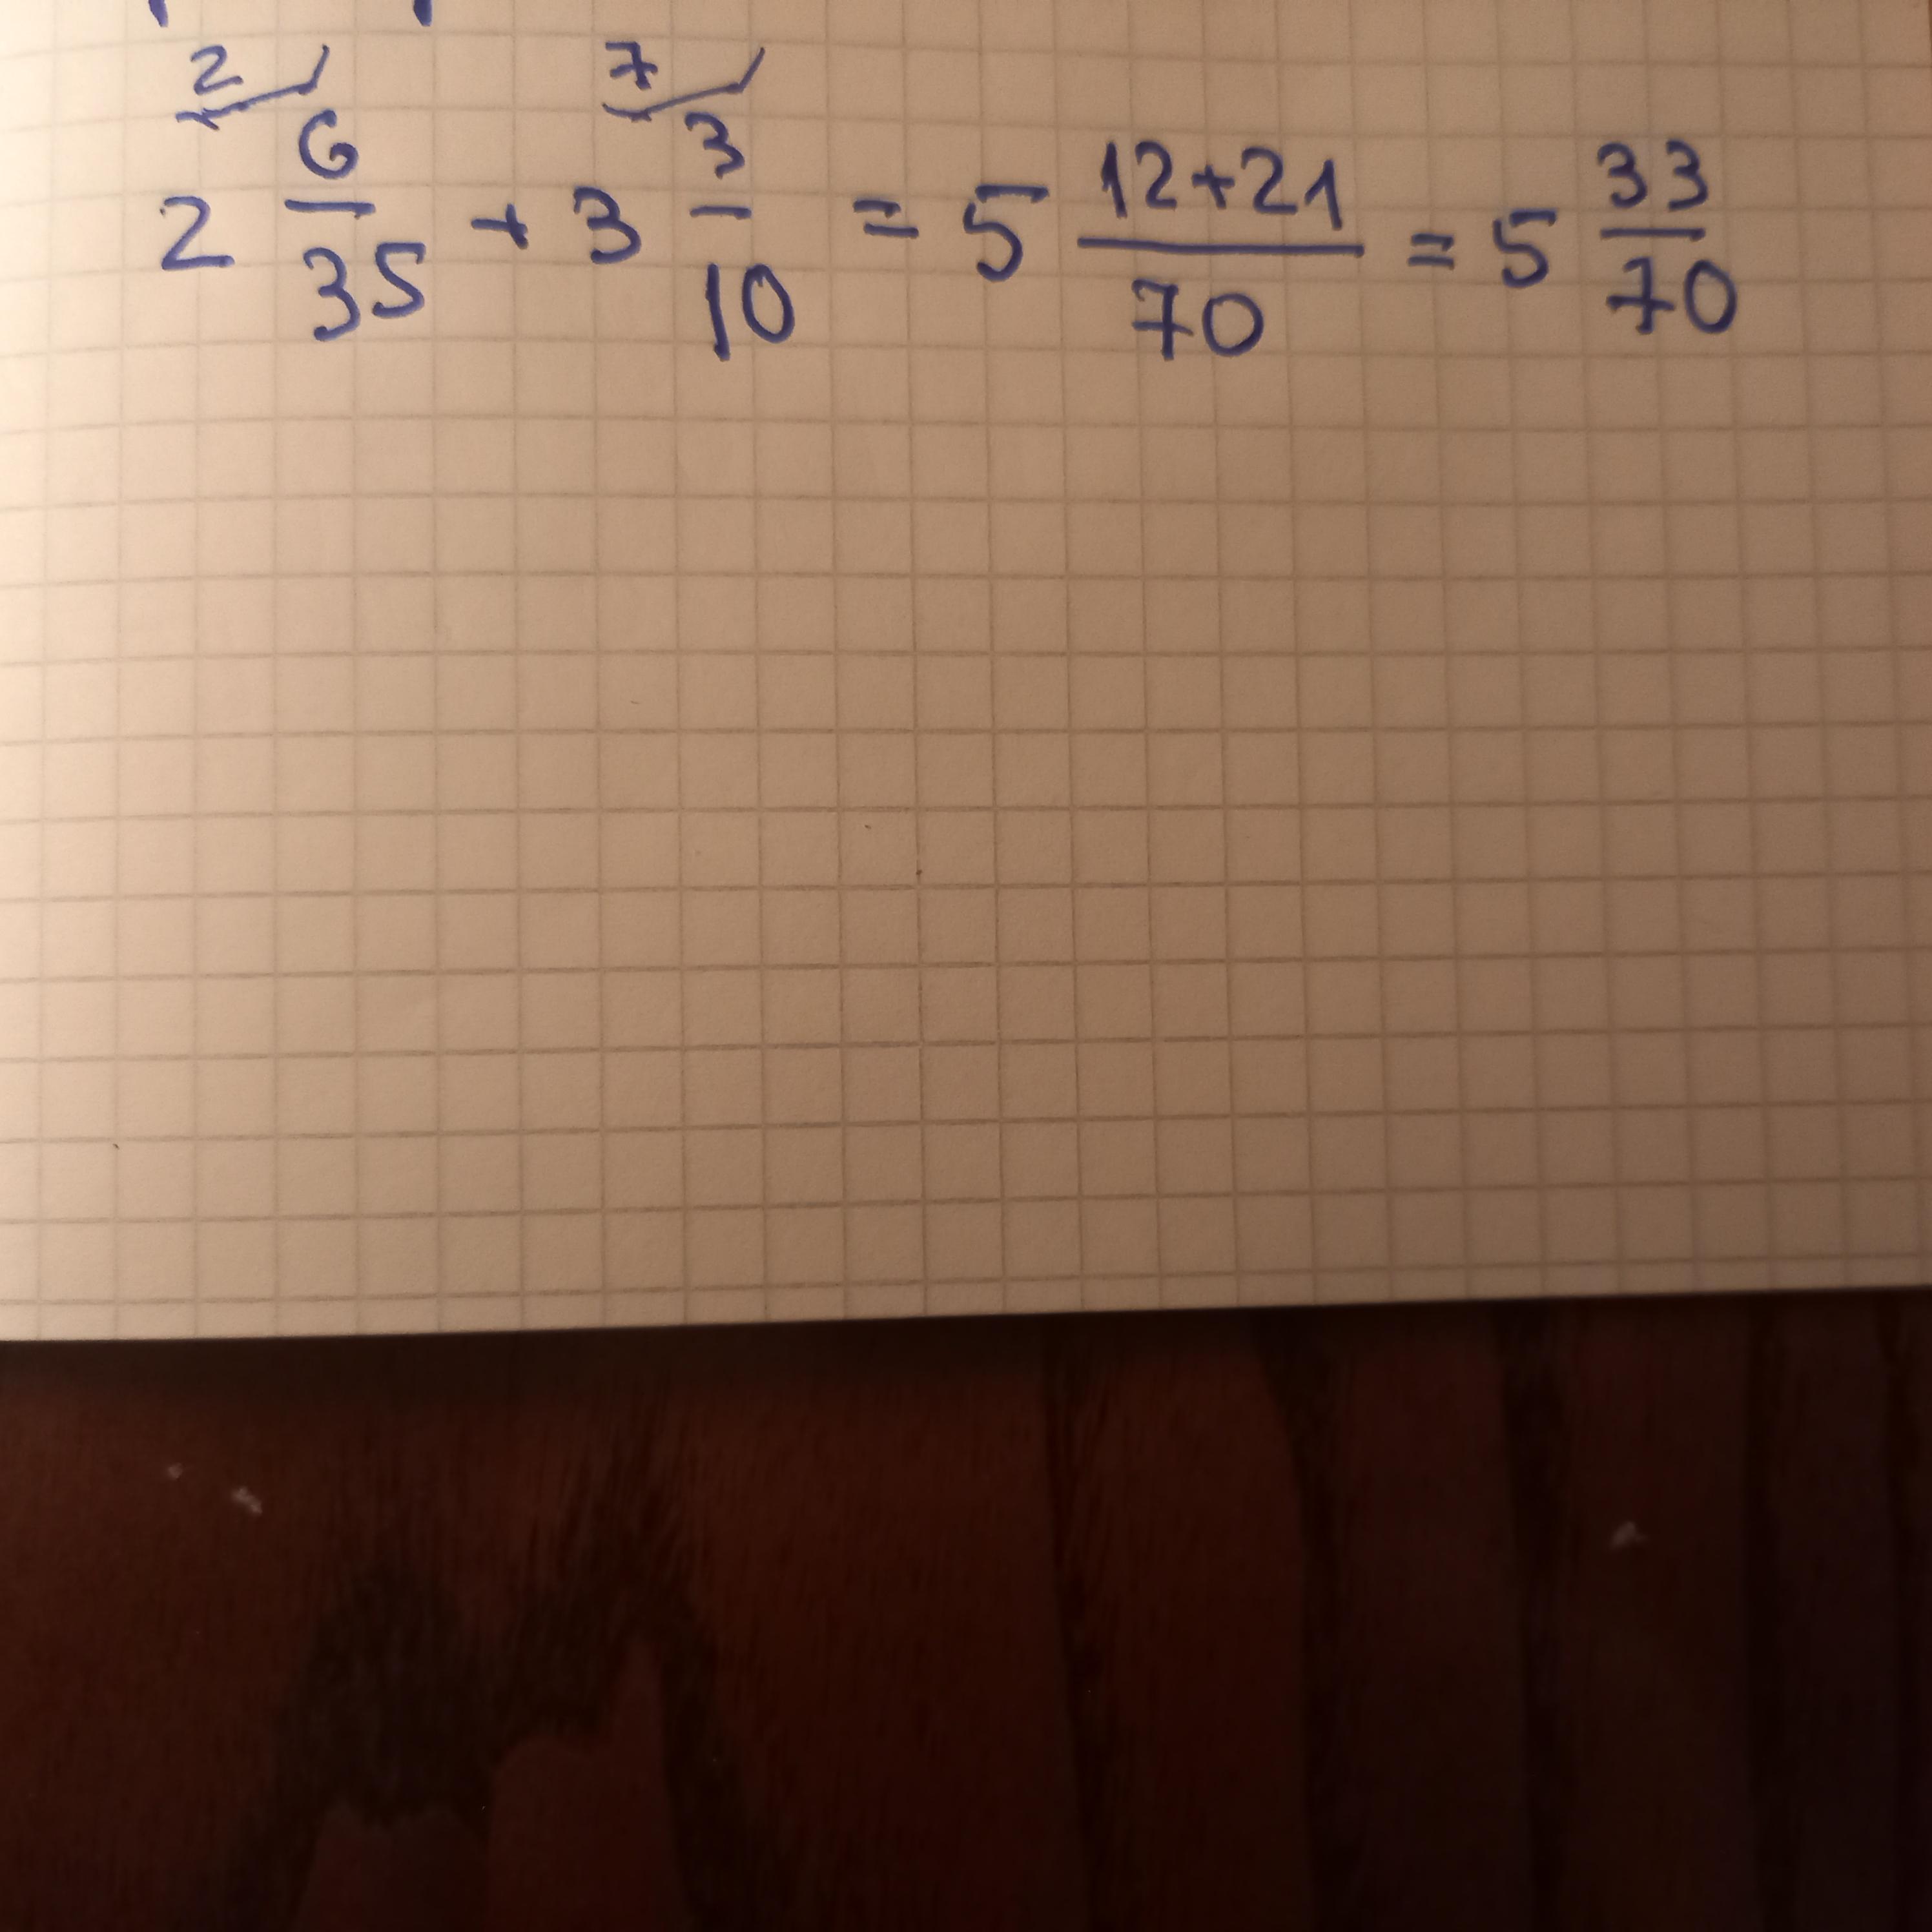 2 7
2 6/35 + 3 3/10 = 5 12+21/70 = 5 33/70